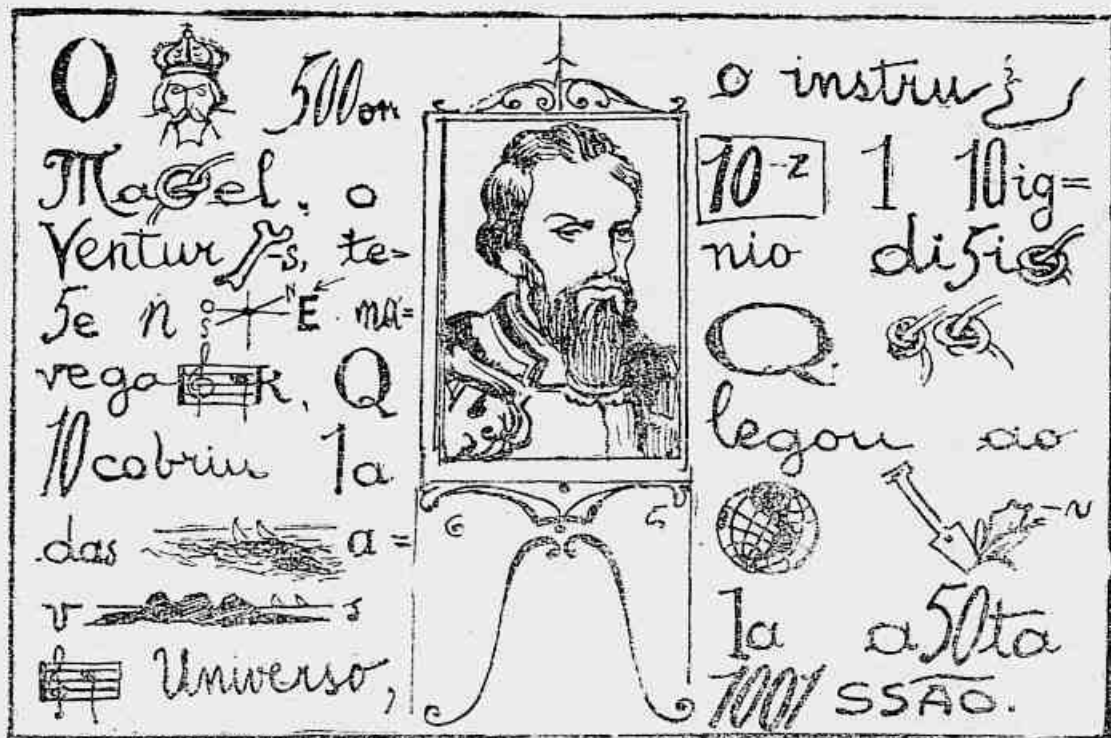 O 500on
Ma el, o
Ventur -s, te=
5e n O S N E má=
vega R, Q
10cobriu 1a
das a=
v s
Universo,
o instru
10-z 1 10ig=
nio di5i
Q
legou ao
-N
1a a50ta
1001 SSÃO.